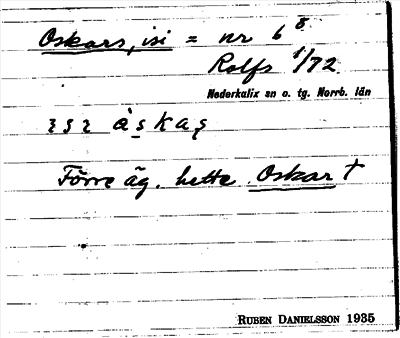 Oskars, isi = nr 6⁸
Rolfs 1/72
Nederkalix sn o. tg. Norrb. län
òskaʂ
Förre äg. hette Oskar †
RUBEN DANIELSSON 1935